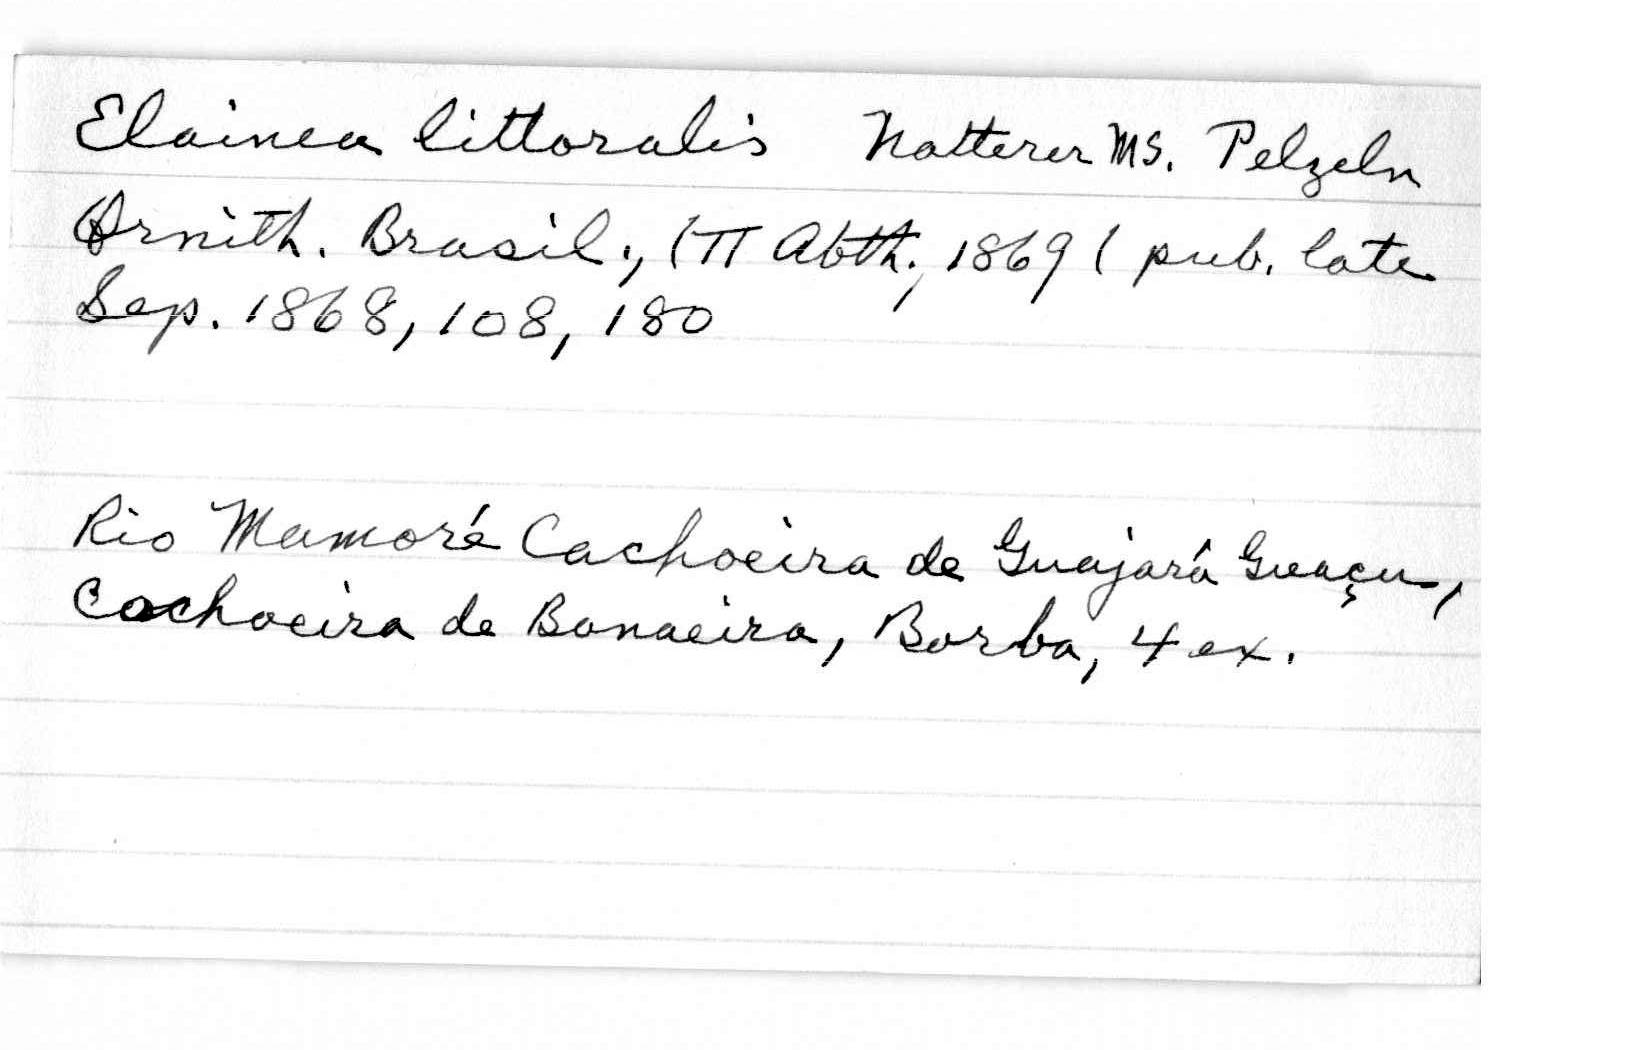 Elainea littoralis Natterer MS. Pelzeln
Ornith. Brasil., (II Abth., 1869 ( pub. late
Sep. 1868, 108, 180
Rio Mamoré Cachoeira de Guajará Guaçu,
Cachoeira de Banaeira, Borba, 4 ex.